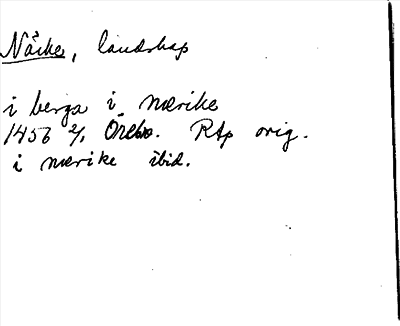 Närke, landskap
i berga i nærike
1456 2/1 Örebro. Rtp orig.
i nærike ibid.